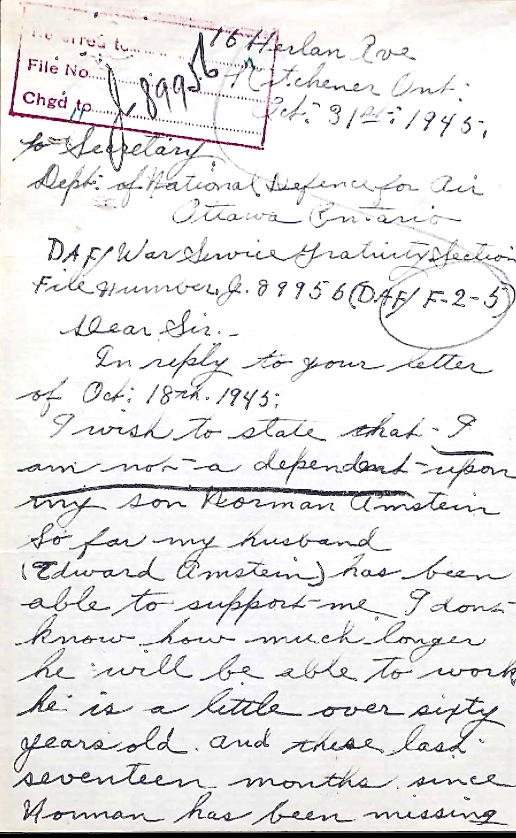 Referred to
File No. J. 89956
Chgd to
16 Herlan Ave
Kitchener Ont:
Oct: 31st: 1945:
to Secretary.
Dept: of National Defence for Air
Ottawa Ontario
DAF/War Service Gratuity Section
File Number. J. 89956 (DAF/F-2-5)
Dear Sir.-
In reply to your letter
of Oct: 18th. 1945:
I wish to state that I
am not a dependent upon
my son Norman Amstein
So far my husband
(Edward Amstein) has been
able to support me I dont
know how much longer
he will be able to work
he is a little over sixty
years old. and these last
seventeen months since
Norman has been missing